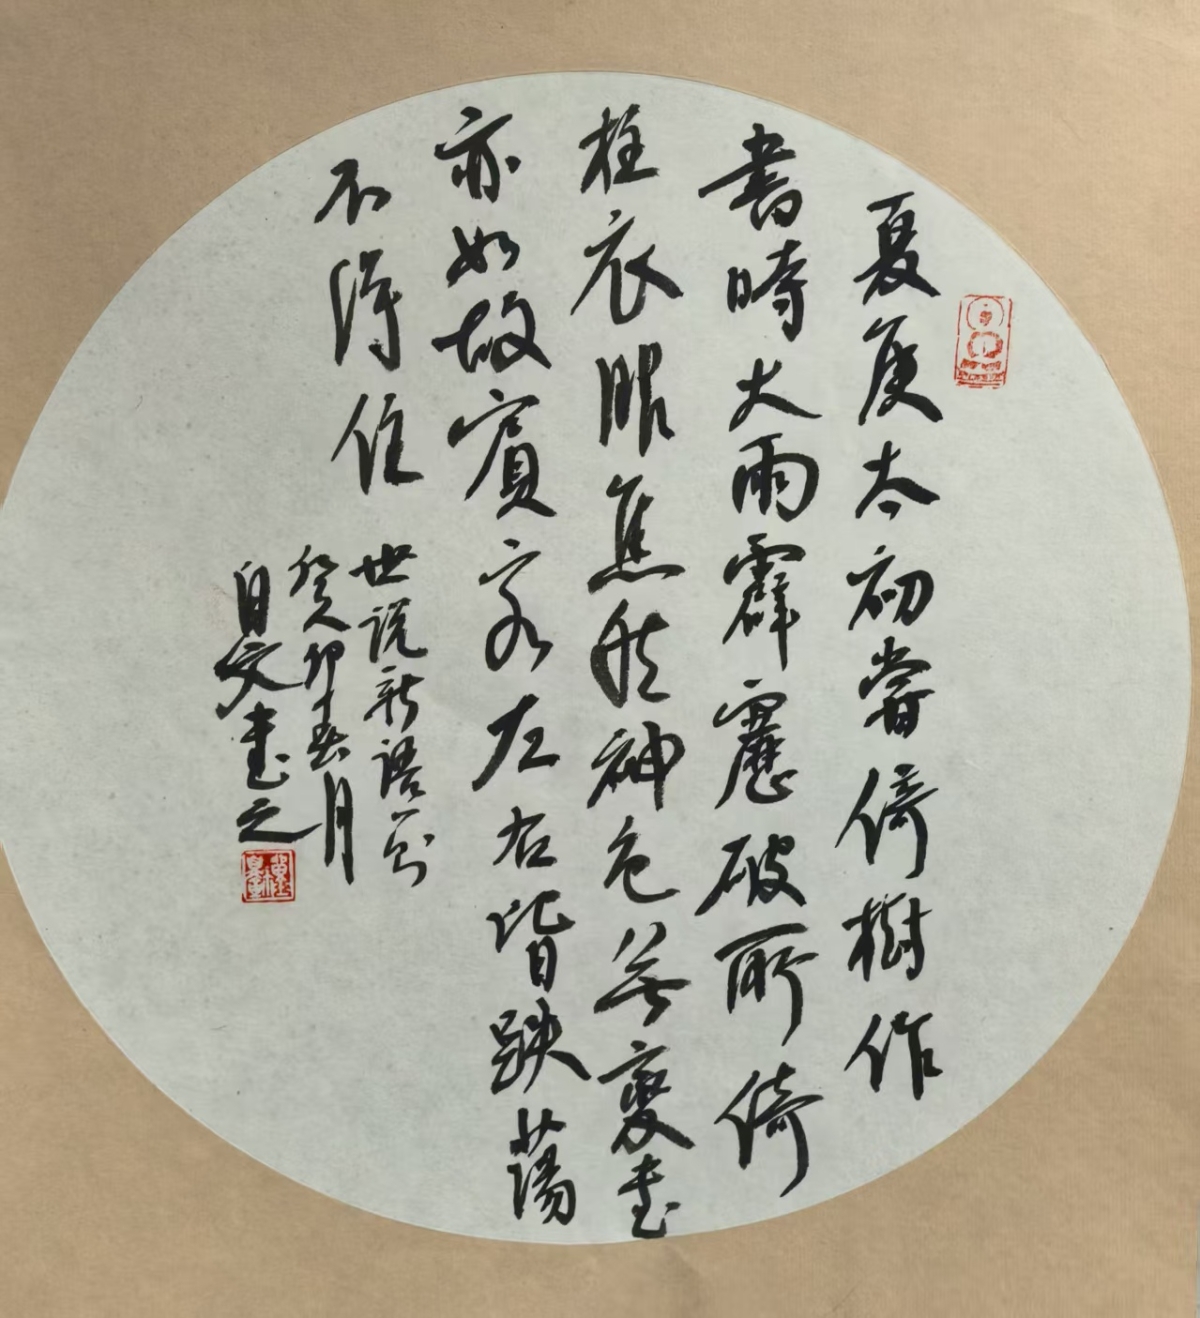 夏侯太初嘗倚樹作
書時大雨霹靂破所倚
柱衣服焦然神色無變書
亦如故賓客左右皆跌蕩
不得住
世說新語
癸卯春月
文書之